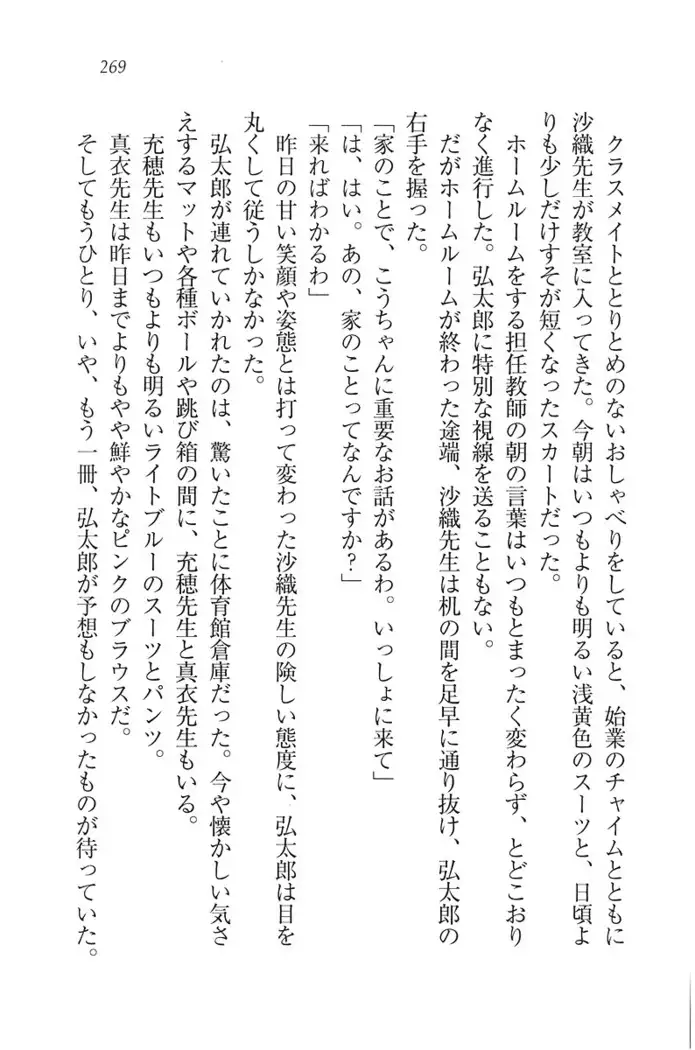 269
クラスメイトととりとめのないおしゃべりをしていると、始業のチャイムとともに
沙織先生が教室に入ってきた。今朝はいつもよりも明るい浅黄色のスーツと、日頃よ
りも少しだけすそが短くなったスカートだった。
ホームルームをする担任教師の朝の言葉はいつもとまったく変わらず、とどこおり
なく進行した。弘太郎に特別な視線を送ることもない。
だがホームルームが終わった途端、沙織先生は机の間を足早に通り抜け、弘太郎の
右手を握った。
「家のことで、こうちゃんに重要なお話があるわ。いっしょに来て」
「は、はい。あの、家のことってなんですか?」
「来ればわかるわ」
昨日の甘い笑顔や姿態とは打って変わった沙織先生の険しい態度に、弘太郎は目を
丸くして従うしかなかった。
弘太郎が連れていかれたのは、驚いたことに体育館倉庫だった。今や懐かしい気さ
えするマットや各種ボールや跳び箱の間に、充穂先生と真衣先生もいる。
充穂先生もいつもよりも明るいライトブルーのスーツとパンツ。
真衣先生は昨日までよりもやや鮮やかなピンクのブラウスだ。
そしてもうひとり、いや、もう一冊、弘太郎が予想もしなかったものが待っていた。